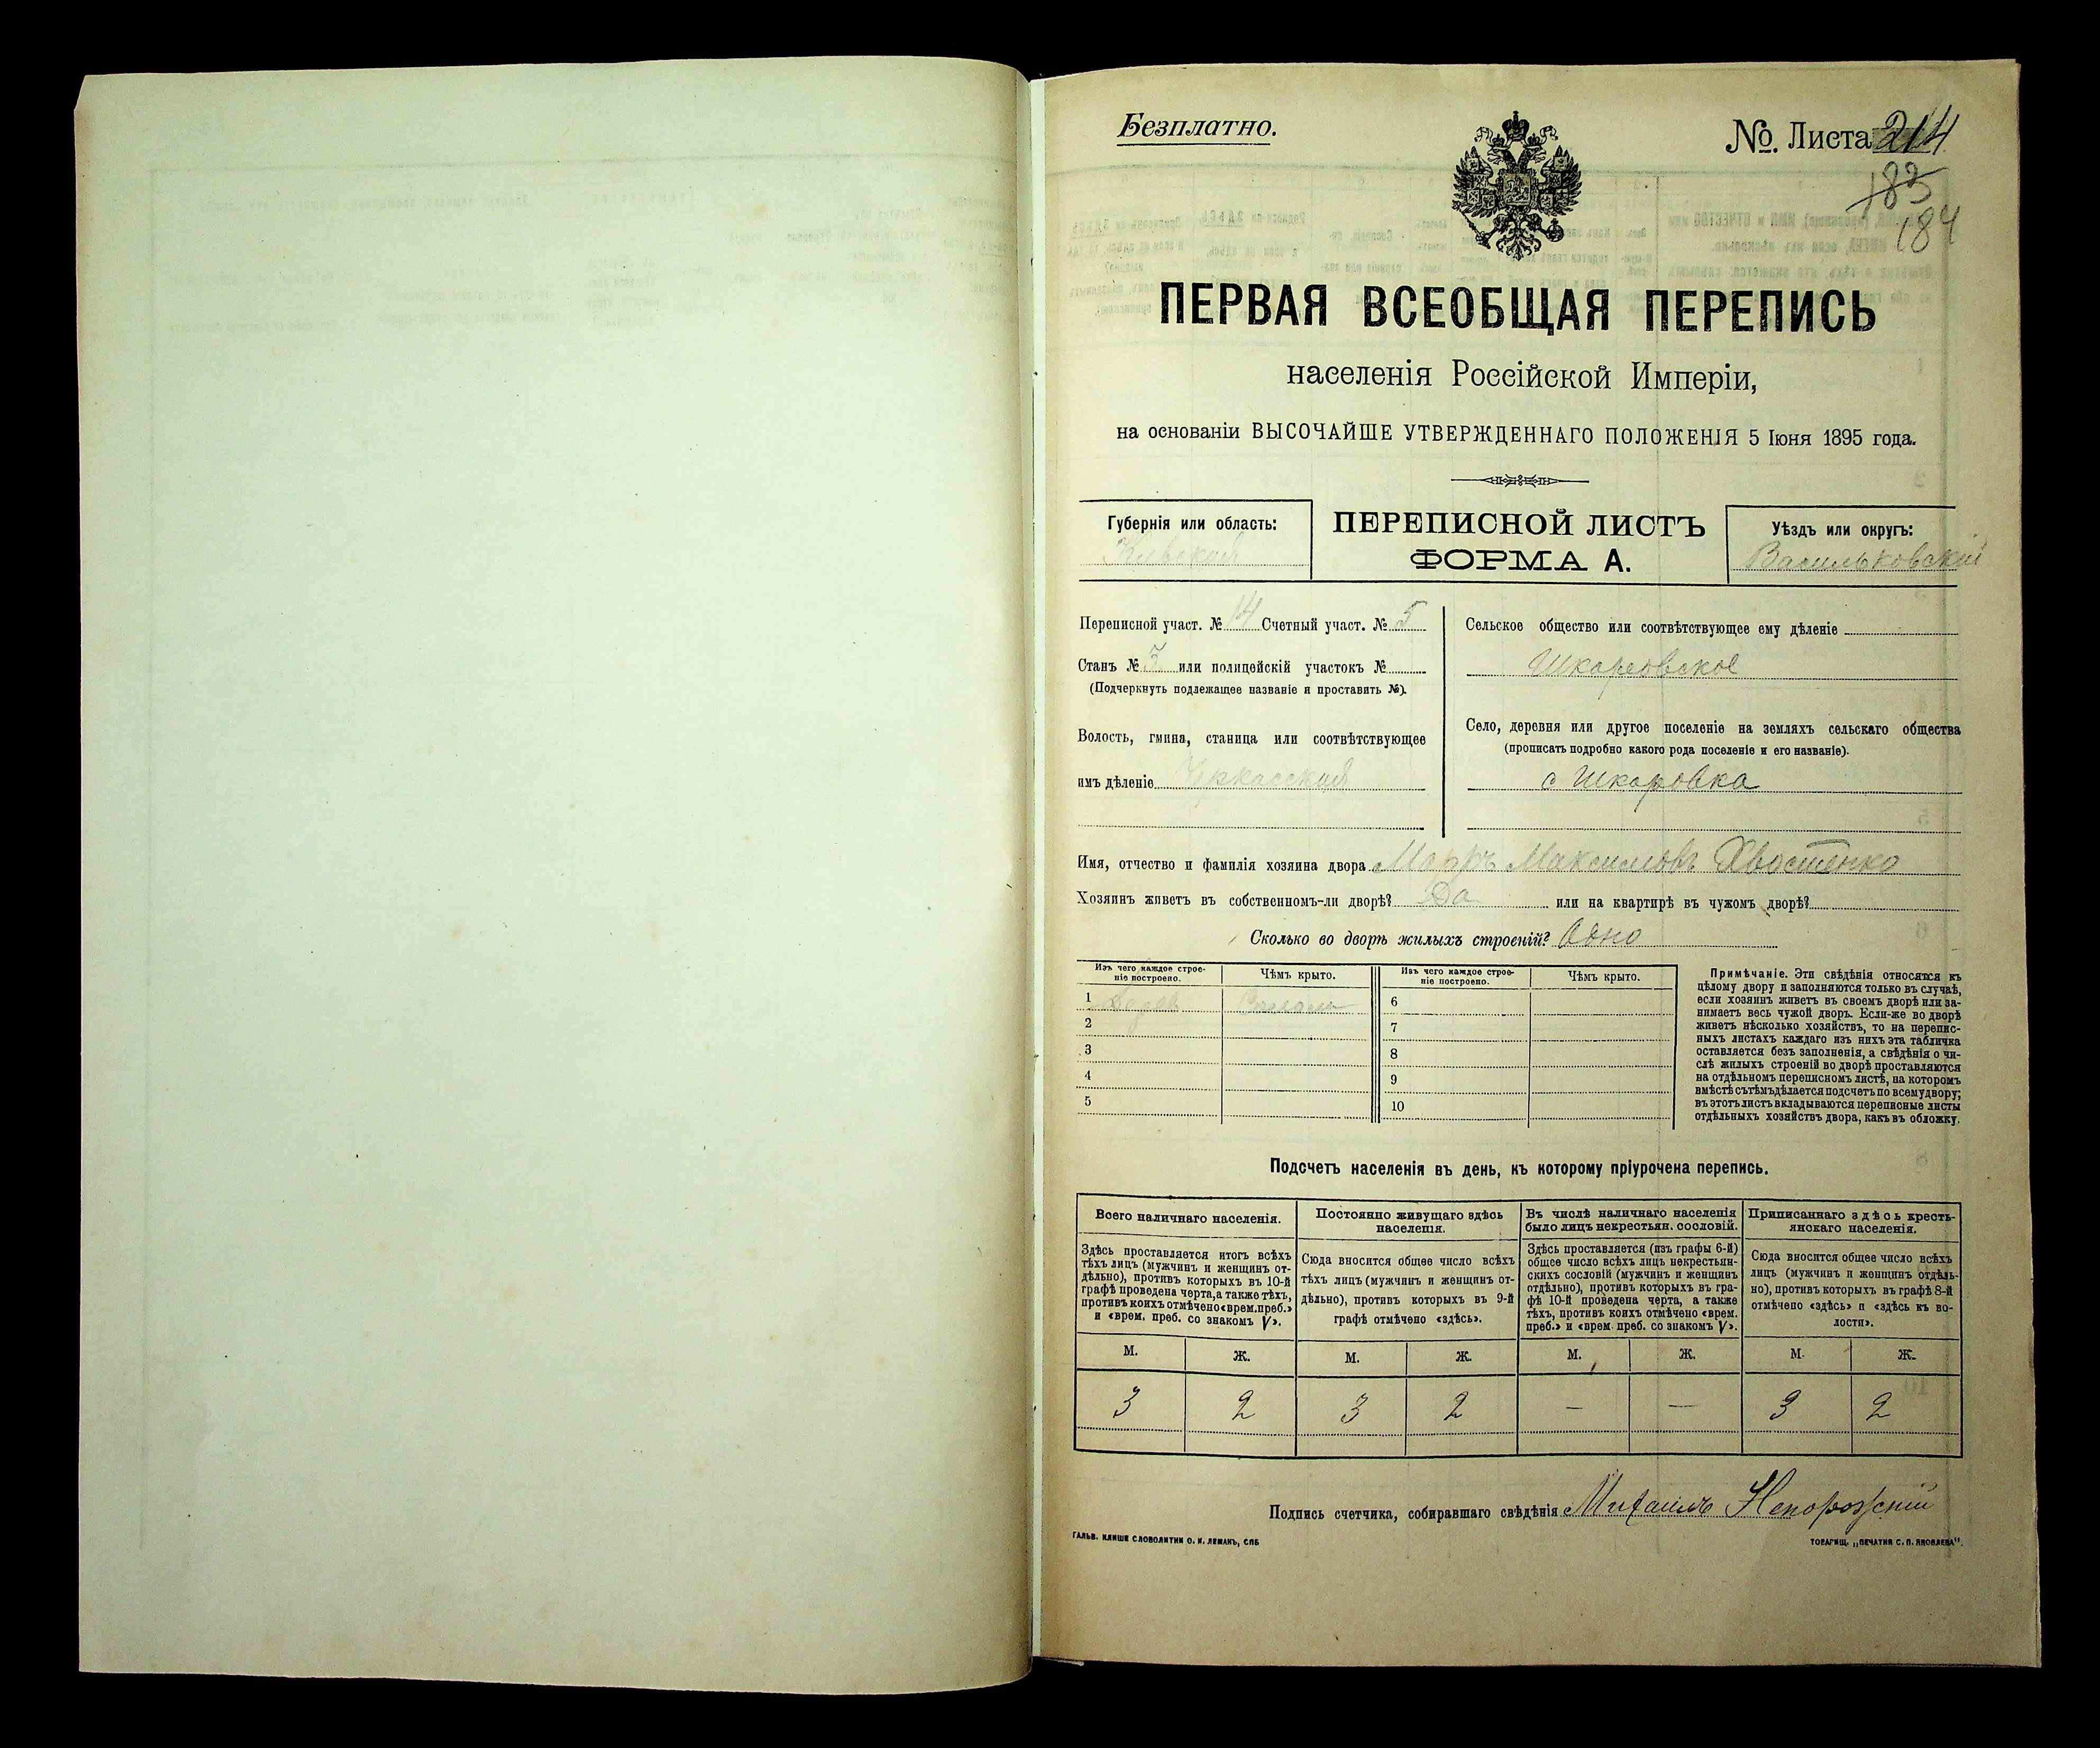 Безплатно.
№. Листа 214
183
184
ПЕРВАЯ ВСЕОБЩАЯ ПЕРЕПИСЬ
населенія Россійской Имперіи,
на основаніи ВЫСОЧАЙШЕ УТВЕРЖДЕННАГО ПОЛОЖЕНІЯ 5 Іюня 1895 года.
Губернія или область:
Кіевская
ПЕРЕПИСНОЙ ЛИСТЪ
ФОРМА А.
Уѣздъ или округъ:
Васильковскій
Переписной участ. № 14 Счетный участ. № 5
Станъ № 3 или полицейскій участокъ №
(Подчеркнуть подлежащее названіе и проставить №).
Волость, гмина, станица или соотвѣтствующее
имъ дѣленіе Черкасская
Сельское общество или соотвѣтствующее ему дѣленіе
Шкаровское
Село, деревня или другое поселеніе на земляхъ сельскаго общества
(прописать подробно какого рода поселеніе и его названіе).
с Шкаровка
Имя, отчество и фамилія хозяина двора Максимовъ Хвостенко
Хозяинъ живетъ въ собственномъ-ли дворѣ? Да или на квартирѣ въ чужомъ дворѣ?
Сколько во дворѣ жилыхъ строеній? Одно
Изъ чего каждое строе-
ніе построено.
Чѣмъ крыто.
Изъ чего каждое строе-
ніе построено.
Чѣмъ крыто.
1
6
2
7
3
8
4
9
5
10
Примѣчаніе. Эти свѣдѣнія относятся къ
цѣлому двору и заполняются только въ случаѣ,
если хозяинъ живетъ въ своемъ дворѣ или за-
нимаетъ весь чужой дворъ. Если-же во дворѣ
живетъ нѣсколько хозяйствъ, то на перепис-
ныхъ листахъ каждаго изъ нихъ эта табличка
оставляется безъ заполненія, а свѣдѣнія о чи-
слѣ жилыхъ строеній во дворѣ проставляются
на отдѣльномъ переписномъ листѣ, на которомъ
вмѣстѣ съ тѣмъ дѣлается подсчетъ по всему двору;
въ этотъ листъ вкладываются переписные листы
отдѣльныхъ хозяйствъ двора, какъ въ обложку.
Подсчетъ населенія въ день, къ которому пріурочена перепись.
Всего наличнаго населенія.
Здѣсь проставляется итогъ всѣхъ
тѣхъ лицъ (мужчинъ и женщинъ от-
дѣльно), противъ которыхъ въ 10-й
графѣ проведена черта, а также тѣхъ,
противъ коихъ отмѣчено «врем. преб.»
и «врем. преб. со знакомъ V».
Постоянно живущаго здѣсь
населенія.
Сюда вносится общее число всѣхъ
тѣхъ лицъ (мужчинъ и женщинъ от-
дѣльно), противъ которыхъ въ 9-й
графѣ отмѣчено «здѣсь».
Въ числѣ наличнаго населенія
было лицъ некрестьян. сословій.
Здѣсь проставляется (изъ графы 6-й)
общее число всѣхъ лицъ некрестьян-
скихъ сословій (мужчинъ и женщинъ
отдѣльно), противъ которыхъ въ гра-
фѣ 10-й проведена черта, а также
тѣхъ, противъ коихъ отмѣчено «врем.
преб.» и «врем. преб. со знакомъ V».
Приписаннаго здѣсь кресть-
янскаго населенія.
Сюда вносится общее число всѣхъ
лицъ (мужчинъ и женщинъ отдѣль-
но), противъ которыхъ въ графѣ 8-й
отмѣчено «здѣсь» и «здѣсь къ во-
лости».
М. Ж. М. Ж. М. Ж. М. Ж.
3 2 3 2 — — 3 2
Подпись счетчика, собиравшаго свѣдѣнія Михаилъ
ГАЛЬВ. КЛИШЕ СЛОВОЛИТНИ О. И. ЛЕМАНЪ, СПБ
ТОВАРИЩ. „ПЕЧАТНЯ С. П. ЯКОВЛЕВА".